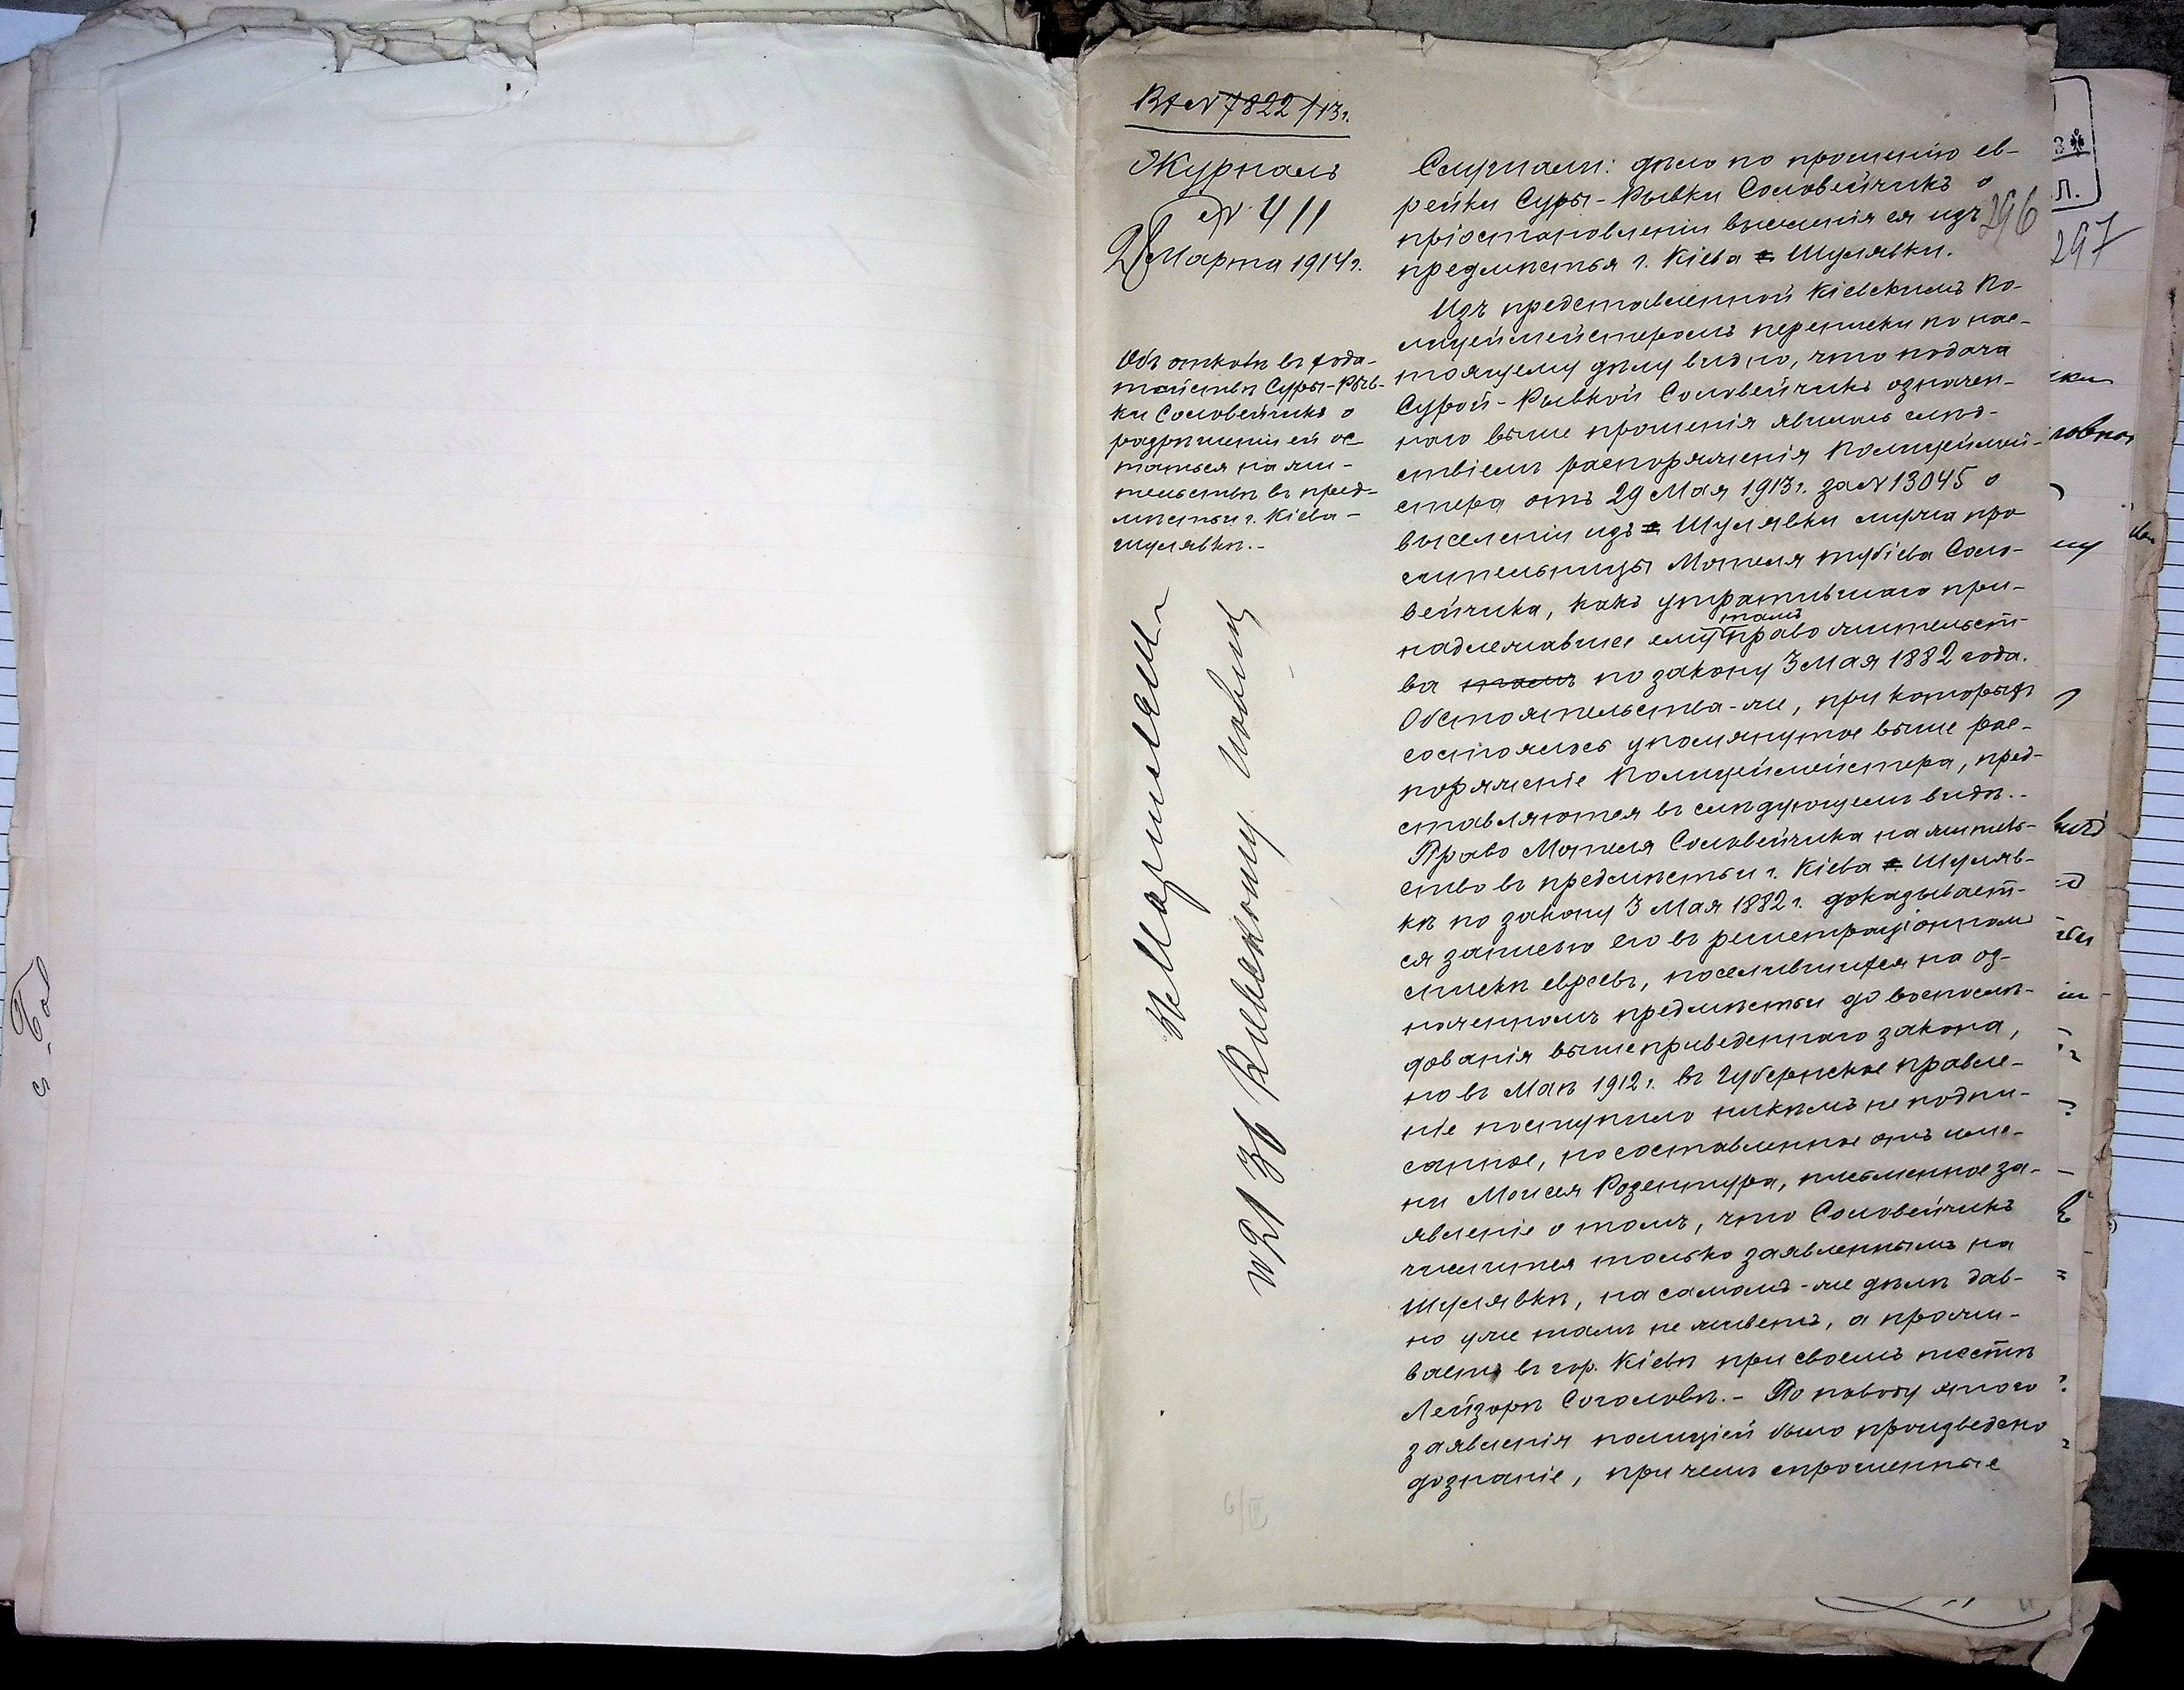 ВА № 7822/13 г.
Журналъ
№ 411
21 Марта 1914 г.
Объ отказѣ въ хода-
тайствѣ Суры-Рыв-
ки Соловейчикъ о
разрѣшеніи ей ос-
таться на жи-
тельствѣ въ пред-
мѣстьи г. Кіева -
Шулявкѣ.-
296
Слушали: дѣло по прошенію ев-
рейки Суры-Рывки Соловейчикъ о
пріостановленіи выселенія ея изъ
предмѣстья г. Кіева Шулявки.
Изъ представленной Кіевскимъ По-
лицеймейстеромъ переписки по нас-
тоящему дѣлу видно, что подача
Сурой-Рывкой Соловейчикъ означен-
наго выше прошенія явилась слѣд-
ствіемъ распоряженія Полицеймей-
стера отъ 29 Мая 1913 г. за № 13045 о
выселеніи изъ Шулявки мужа про
сительницы Мотеля Тубіева Соло-
вейчика, какъ утратившаго при-
надлежавшее ему тамъ право жительст-
ва тамъ по закону 3 Мая 1882 года.
Обстоятельства-же, при которыхъ
состоялось упомянутое выше рас-
поряженіе Полицеймейстера, пред-
ставляются въ слѣдующемъ видѣ.-
Право Мотеля Соловейчика на житель-
ство въ предмѣстьи г. Кіева Шуляв-
кѣ по закону 3 Мая 1882 г. доказывает-
ся записью его въ регистраціонномъ
спискѣ евреевъ, поселившихся на оз-
наченномъ предмѣстьи до воспослѣ-
дованія вышеприведеннаго закона,
но въ Маѣ 1912 г. въ Губернское Правле-
ніе поступило никѣмъ не подпи-
санное, но составленное отъ име-
ни Моисея Розентура, письменное за-
явленіе о томъ, что Соловейчикъ
числится только заявленнымъ на
Шулявкѣ, на самомъ-же дѣлѣ дав-
но уже тамъ не живетъ, а прожи-
ваетъ въ гор. Кіевѣ при своемъ тестѣ
Лейзорѣ Соголовѣ.- По поводу этого
заявленія полиціей было произведено
дознаніе, при чемъ спрошенные
297